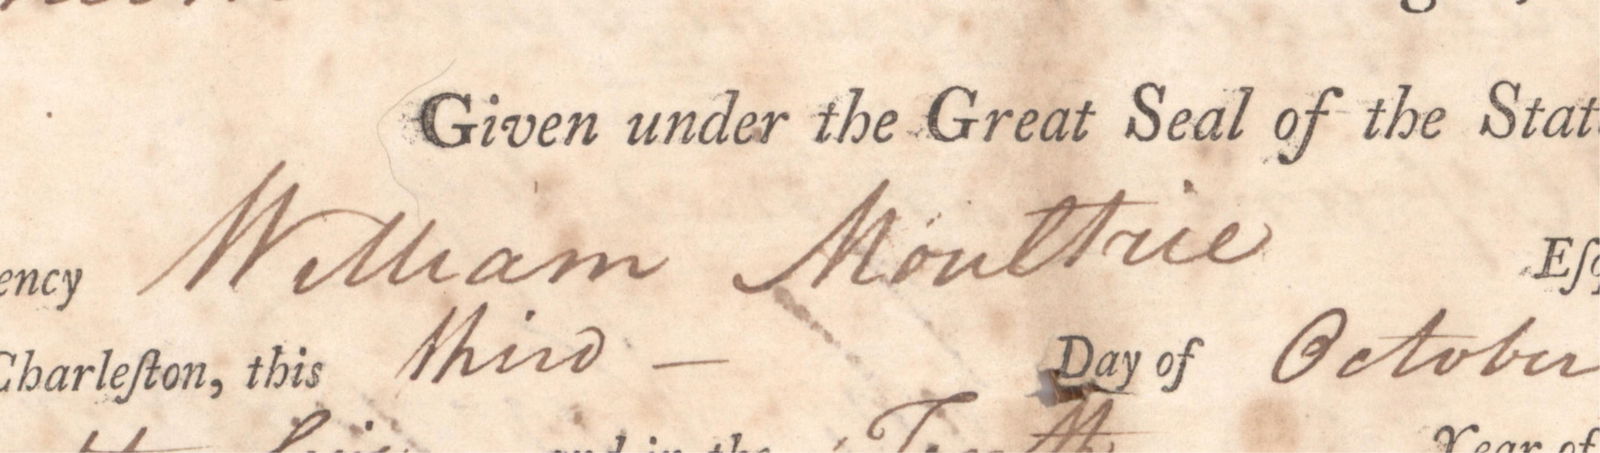 Given under the Great Seal of the Stat
ency William Moultrie Eſq
Charleſton, this third — Day of October
and in the Tenth Year of